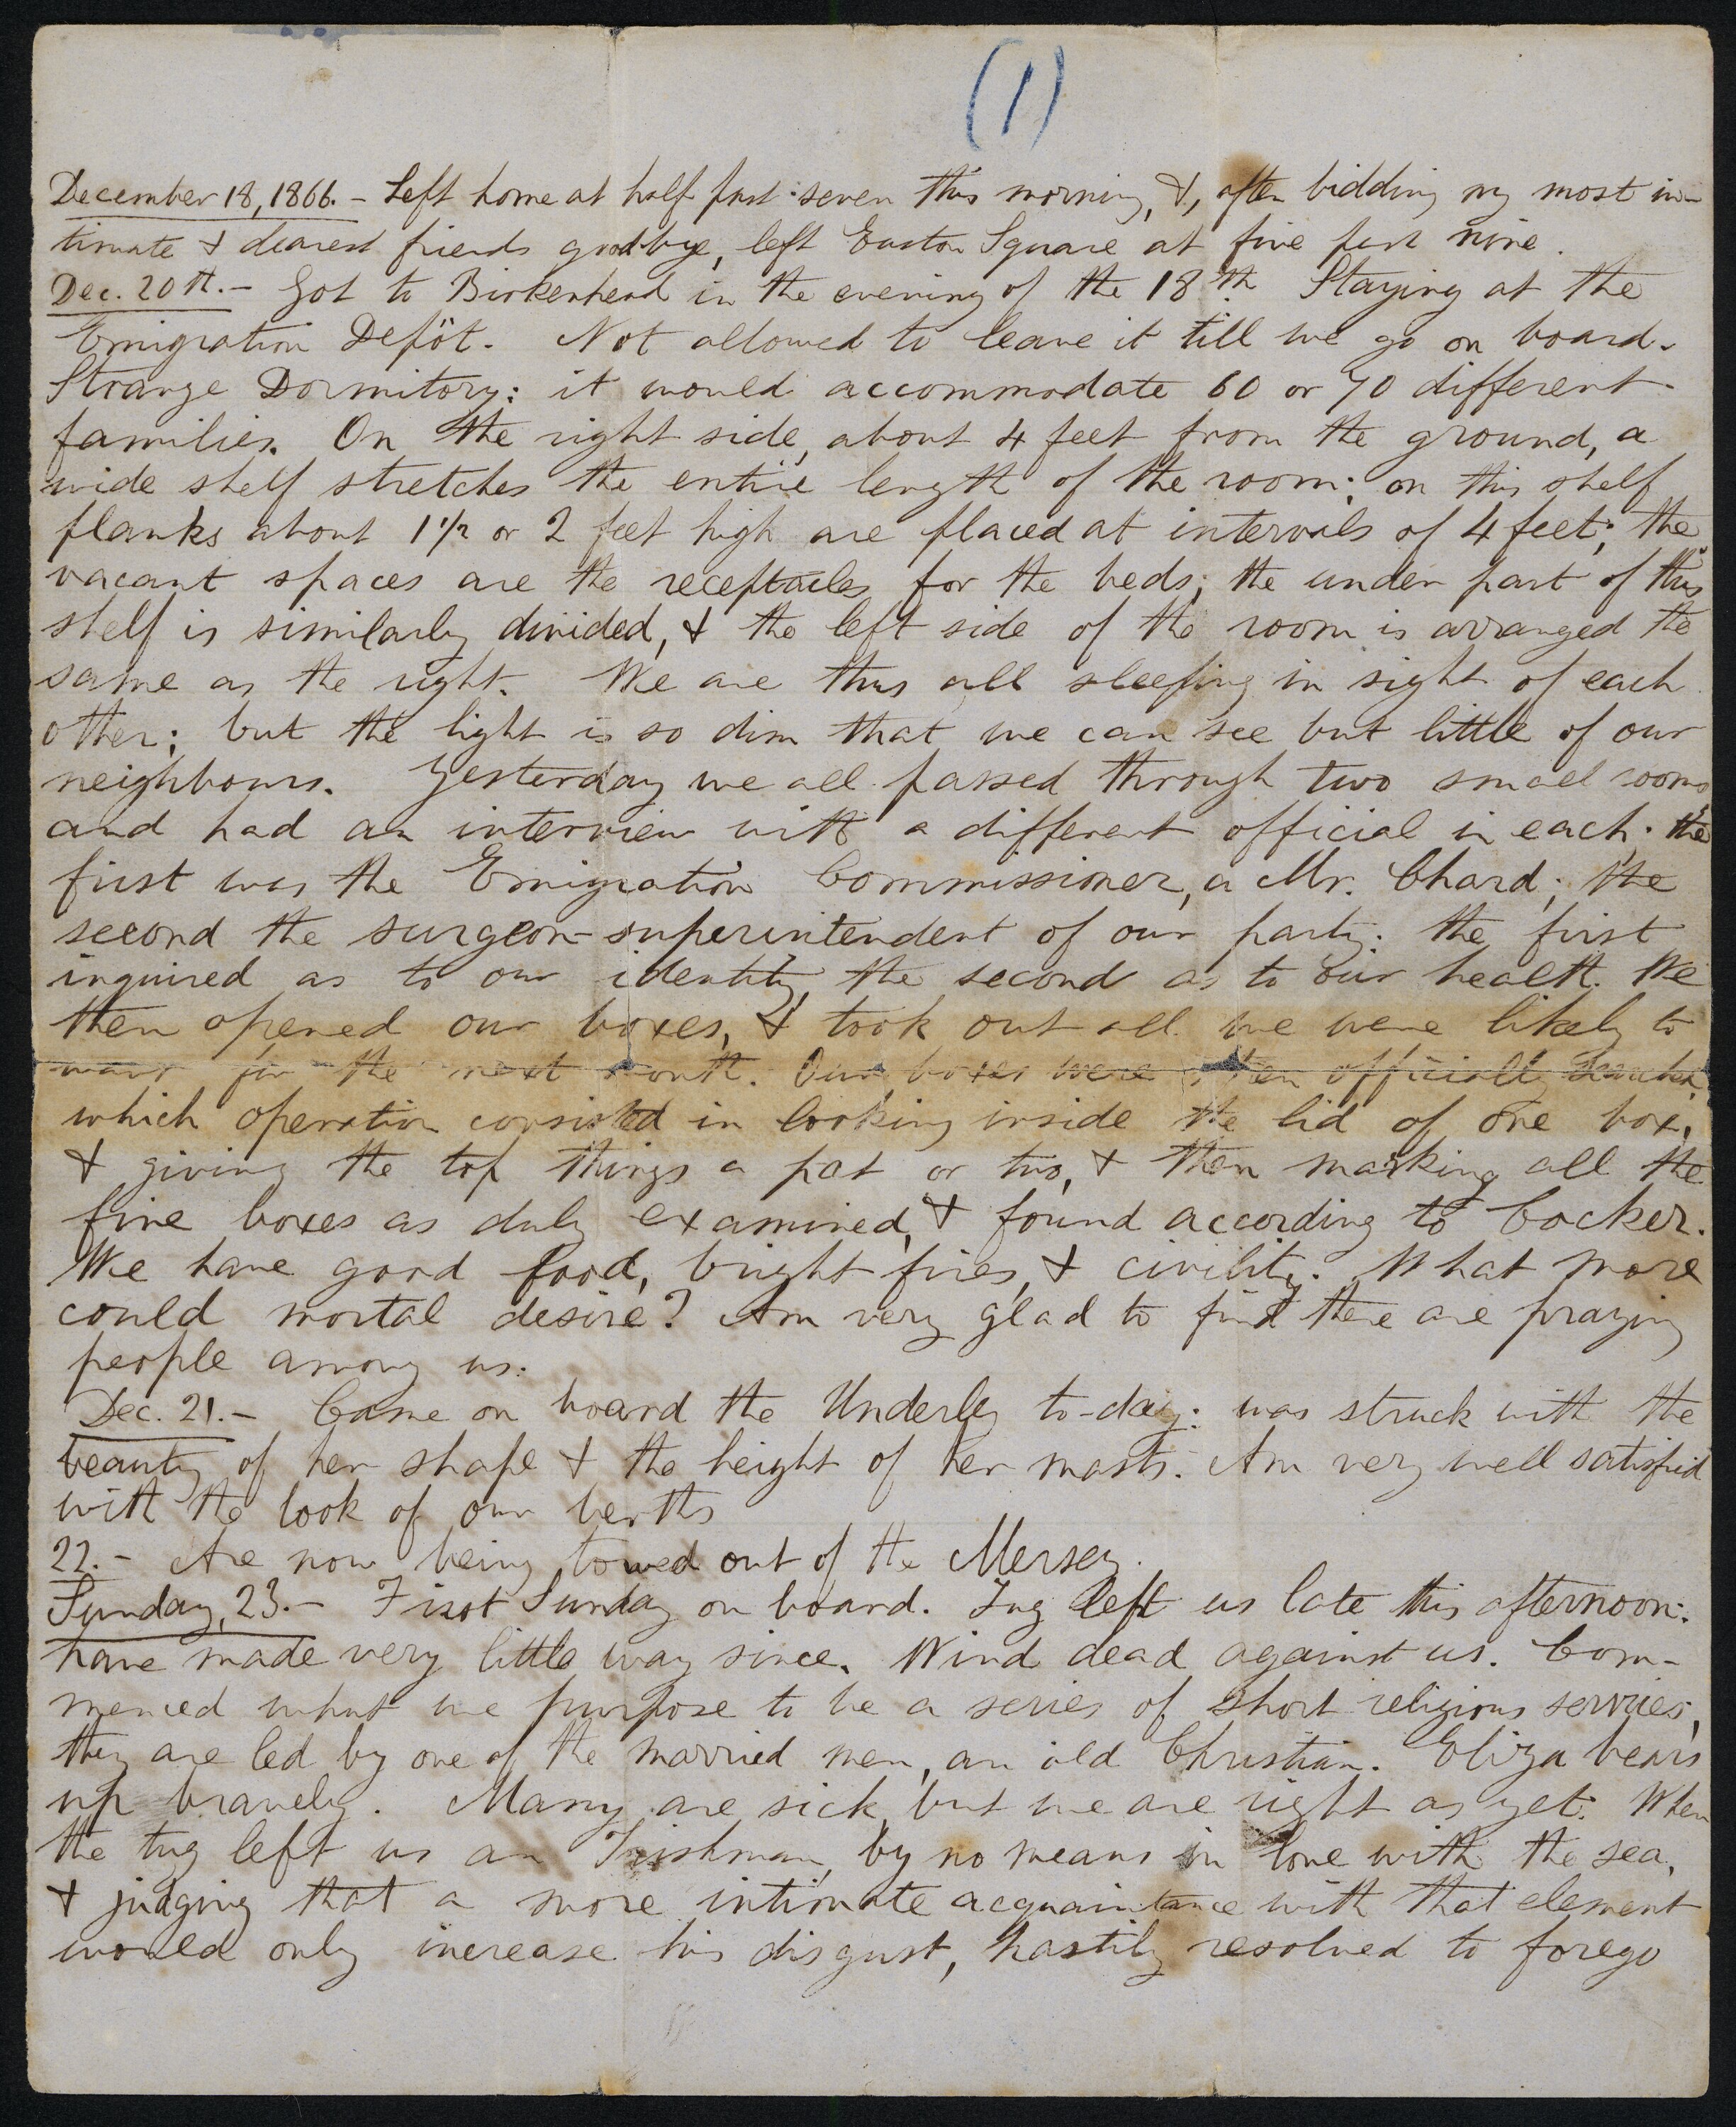 (1)
December 18, 1866. – Left home at half past seven this morning, &, after bidding my most in-
timate & dearest friends good-bye, left Euston Square at five past nine.
Dec. 20th. – Got to Birkenhead in the evening of the 18th. Staying at the
Emigration Depôt. Not allowed to leave it till we go on board.
Strange Dormitory: it would accommodate 60 or 70 different
families. On the right side, about 4 feet from the ground, a
wide shelf stretches the entire length of the room; on this shelf
planks about 1 1/2 or 2 feet high are placed at intervals of 4 feet; the
vacant spaces are the receptacles for the beds; the under part of this
shelf is similarly divided, & the left side of the room is arranged the
same as the right. We are thus all sleeping in sight of each
other; but the light is so dim that we can see but little of our
neighbours. Yesterday we all passed through two small rooms
and had an interview with a different official in each; the
first was the Emigration Commissioner, a Mr. Chard; the
second the surgeon-superintendent of our party. the first
inquired as to our identity, the second as to our health. We
then opened our boxes, & took out all we were likely to
want for the next month. Our boxes were then officially searched,
which operation consisted in looking inside the lid of one box,
& giving the top things a pat or two, & then marking all the
five boxes as duly examined, & found according to Cocker.
We have good food, bright fires, & civility. What more
could mortal desire? Am very glad to find there are praying
people among us.
Dec. 21. – Came on board the Underley to-day: was struck with the
beauty of her shape & the height of her masts. Am very well satisfied
with the look of our berths
22. – Are now being towed out of the Mersey.
Sunday, 23. – First Sunday on board. Tug left us late this afternoon:
have made very little way since. Wind dead against us. Com-
menced what we purpose to be a series of short religious services;
they are led by one of the married men, an old Christian. Eliza bears
up bravely. Many are sick, but we are right as yet. When
the tug left us an Irishman, by no means in love with the sea,
& judging that a more intimate acquaintance with that element
would only increase his disgust, hastily resolved to forego